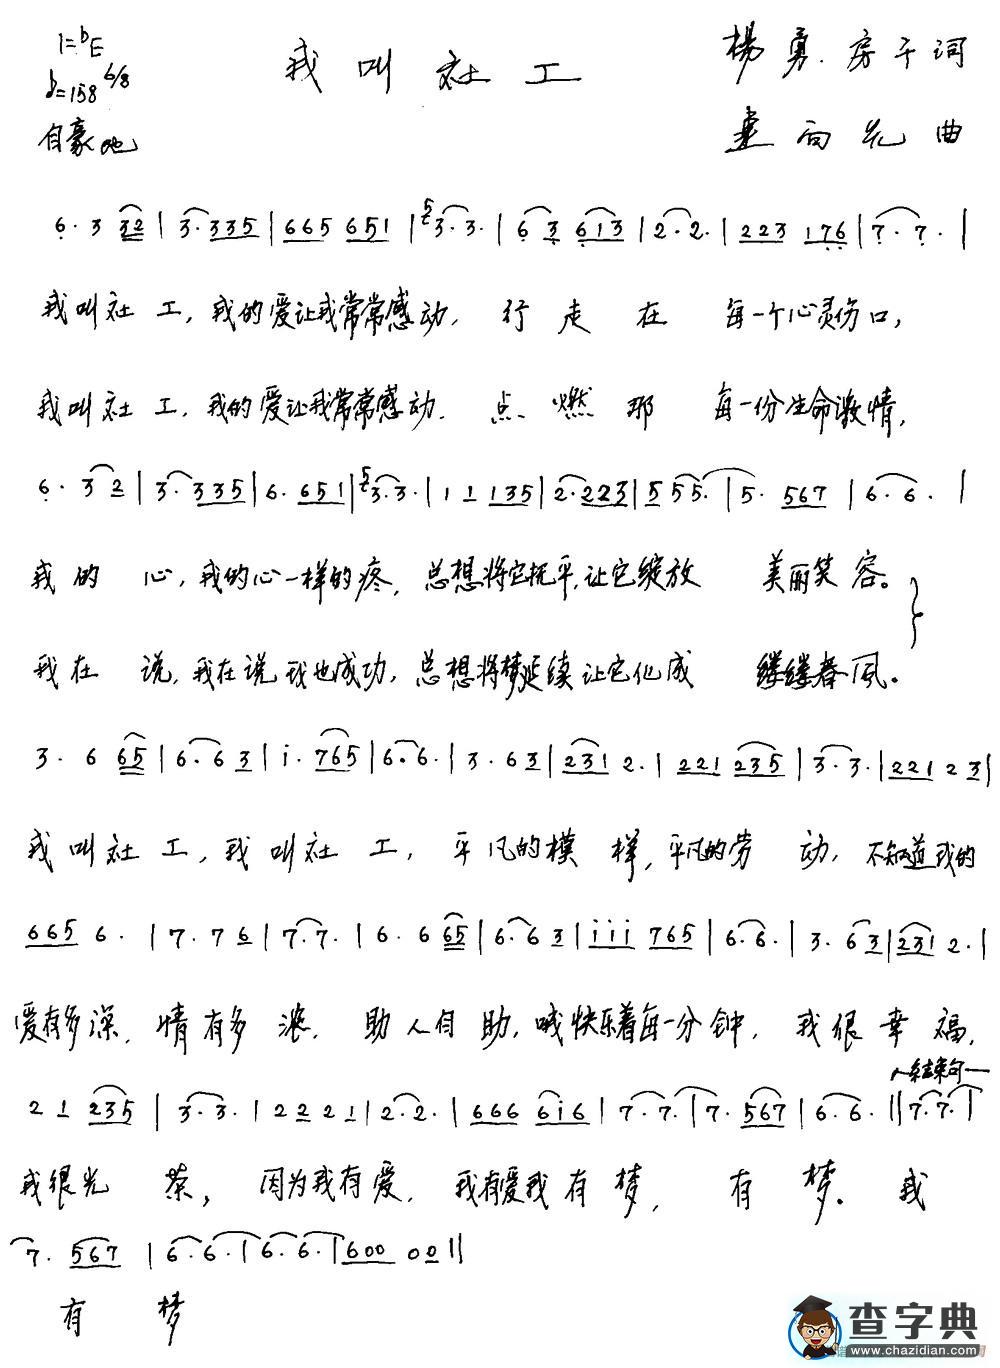 1=bE
我叫社工
楊勇.房千词
=158 6/8
自豪地
向光曲
6. 3 32 | 3. 335 | 665 651 | 5 3. 3. | 6 3 613 | 2. 2. | 223 176 | 7. 7. |
我叫社工,我的爱让我常常感动,行走在每一个心灵伤口,
我叫社工,我的爱让我常常感动.点燃那每一份生命激情,
6. 3 2 | 3. 335 | 6. 651 | 5 3. 3. | 1 1 135 | 2. 223 | 5 55. | 5. 567 | 6. 6. |
我的心,我的心一样的疼,总想将它抚平,让它绽放美丽笑容。
我在说,我在说我也成功,总想将梦延续让它化成缕缕春风。
3. 6 65 | 6. 63 | i. 765 | 6. 6. | 3. 63 | 231 2. | 221 235 | 3. 3. | 221 23 |
我叫社工,我叫社工,平凡的模样,平凡的劳动,不知道我的
665 6. | 7. 76 | 7. 7. | 6. 6 65 | 6. 63 | iii 765 | 6. 6. | 3. 63 | 231 2. |
爱有多深,情有多浓.助人自助,喊快乐着每一分钟,我很幸福,
结束句
21 235 | 3. 3. | 2221 | 2. 2. | 666 6i6 | 7. 7. | 7. 567 | 6. 6. || 7. 7. |
我很光荣,因为我有爱.我有爱我有梦,有梦。我
7. 567 | 6. 6. | 6. 6. | 600 00 ||
有梦
查字典
www.chazidian.com